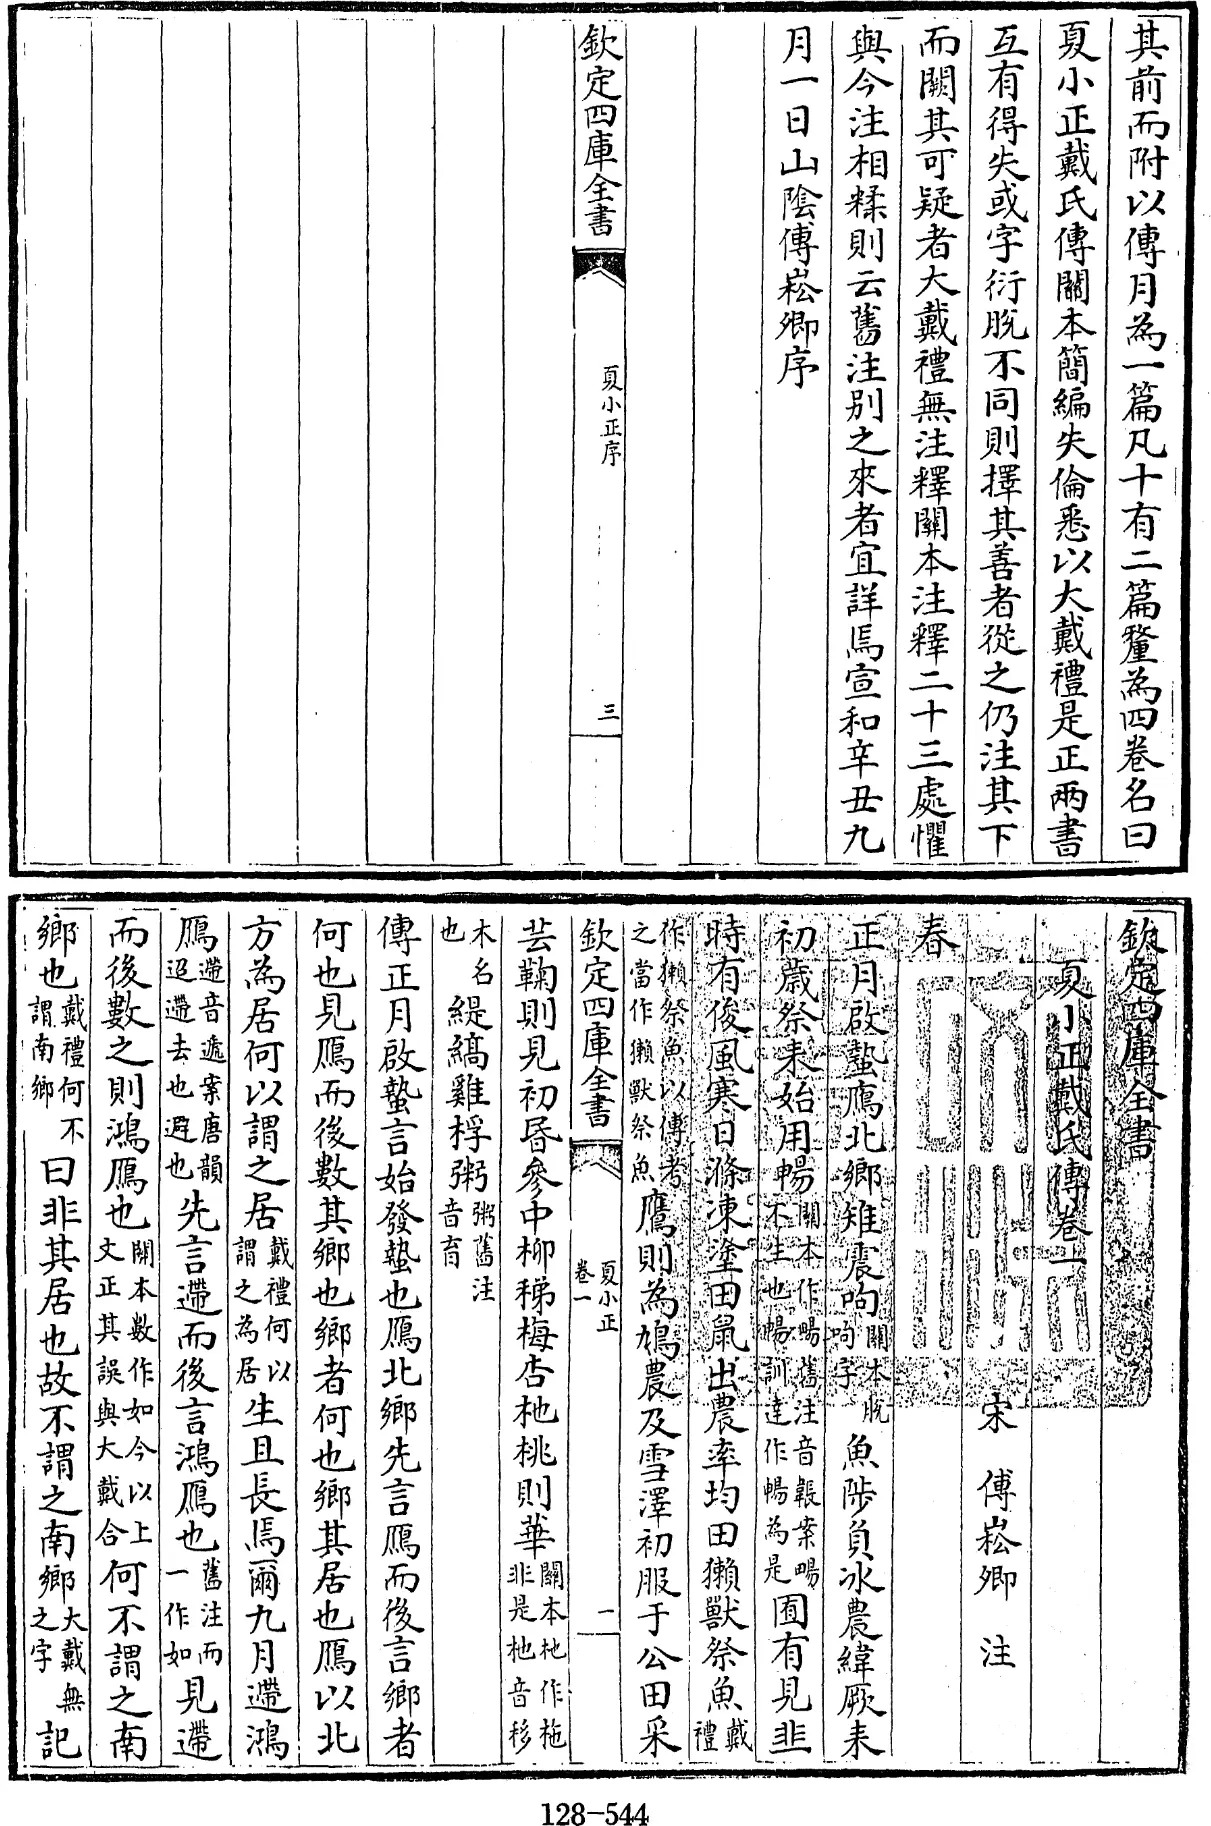 其前而附以傳月為一篇凡十有二篇釐為四卷名曰
夏小正戴氏傳關本簡編失倫悉以大戴禮是正兩書
互有得失或字衍脫不同則擇其善者從之仍注其下
而闕其可疑者大戴禮無注釋關本注釋二十三處懼
與今注相糅則云舊注别之來者宜詳焉宣和辛丑九
月一日山陰傅崧卿序
欽定四庫全書
夏小正序
三
欽定四庫全書
夏小正戴氏傳卷一
宋 傅崧卿 注
春
正月啟蟄鴈北鄉雉震呴關本脫呴字魚陟負冰農緯厥耒
初歲祭耒始用暢關本作暢舊注音韔案暢不生也暢訓達作暢為是囿有見韭
時有俊風寒日滌凍塗田鼠出農率均田獺獸祭魚戴禮
作獺祭魚以傳考之當作獺獸祭魚鷹則為鳩農及雪澤初服于公田采
欽定四庫全書
夏小正
卷一
一
芸鞠則見初昬參中柳稊梅杏杝桃則華關本杝作柂非是杝音移
木名也緹縞雞桴粥粥舊注音育
傳正月啟蟄言始發蟄也鴈北鄉先言鴈而後言鄉者
何也見鴈而後數其鄉也鄉者何也鄉其居也鴈以北
方為居何以謂之居戴禮何以謂之為居生且長焉爾九月遰鴻
鴈遰音遞案唐韻迢遰去也避也先言遰而後言鴻鴈也舊注而一作如見遰
而後數之則鴻鴈也關本數作如今以上文正其誤與大戴合何不謂之南
鄉也戴禮何不謂南鄉曰非其居也故不謂之南鄉大戴無之字記
128-544